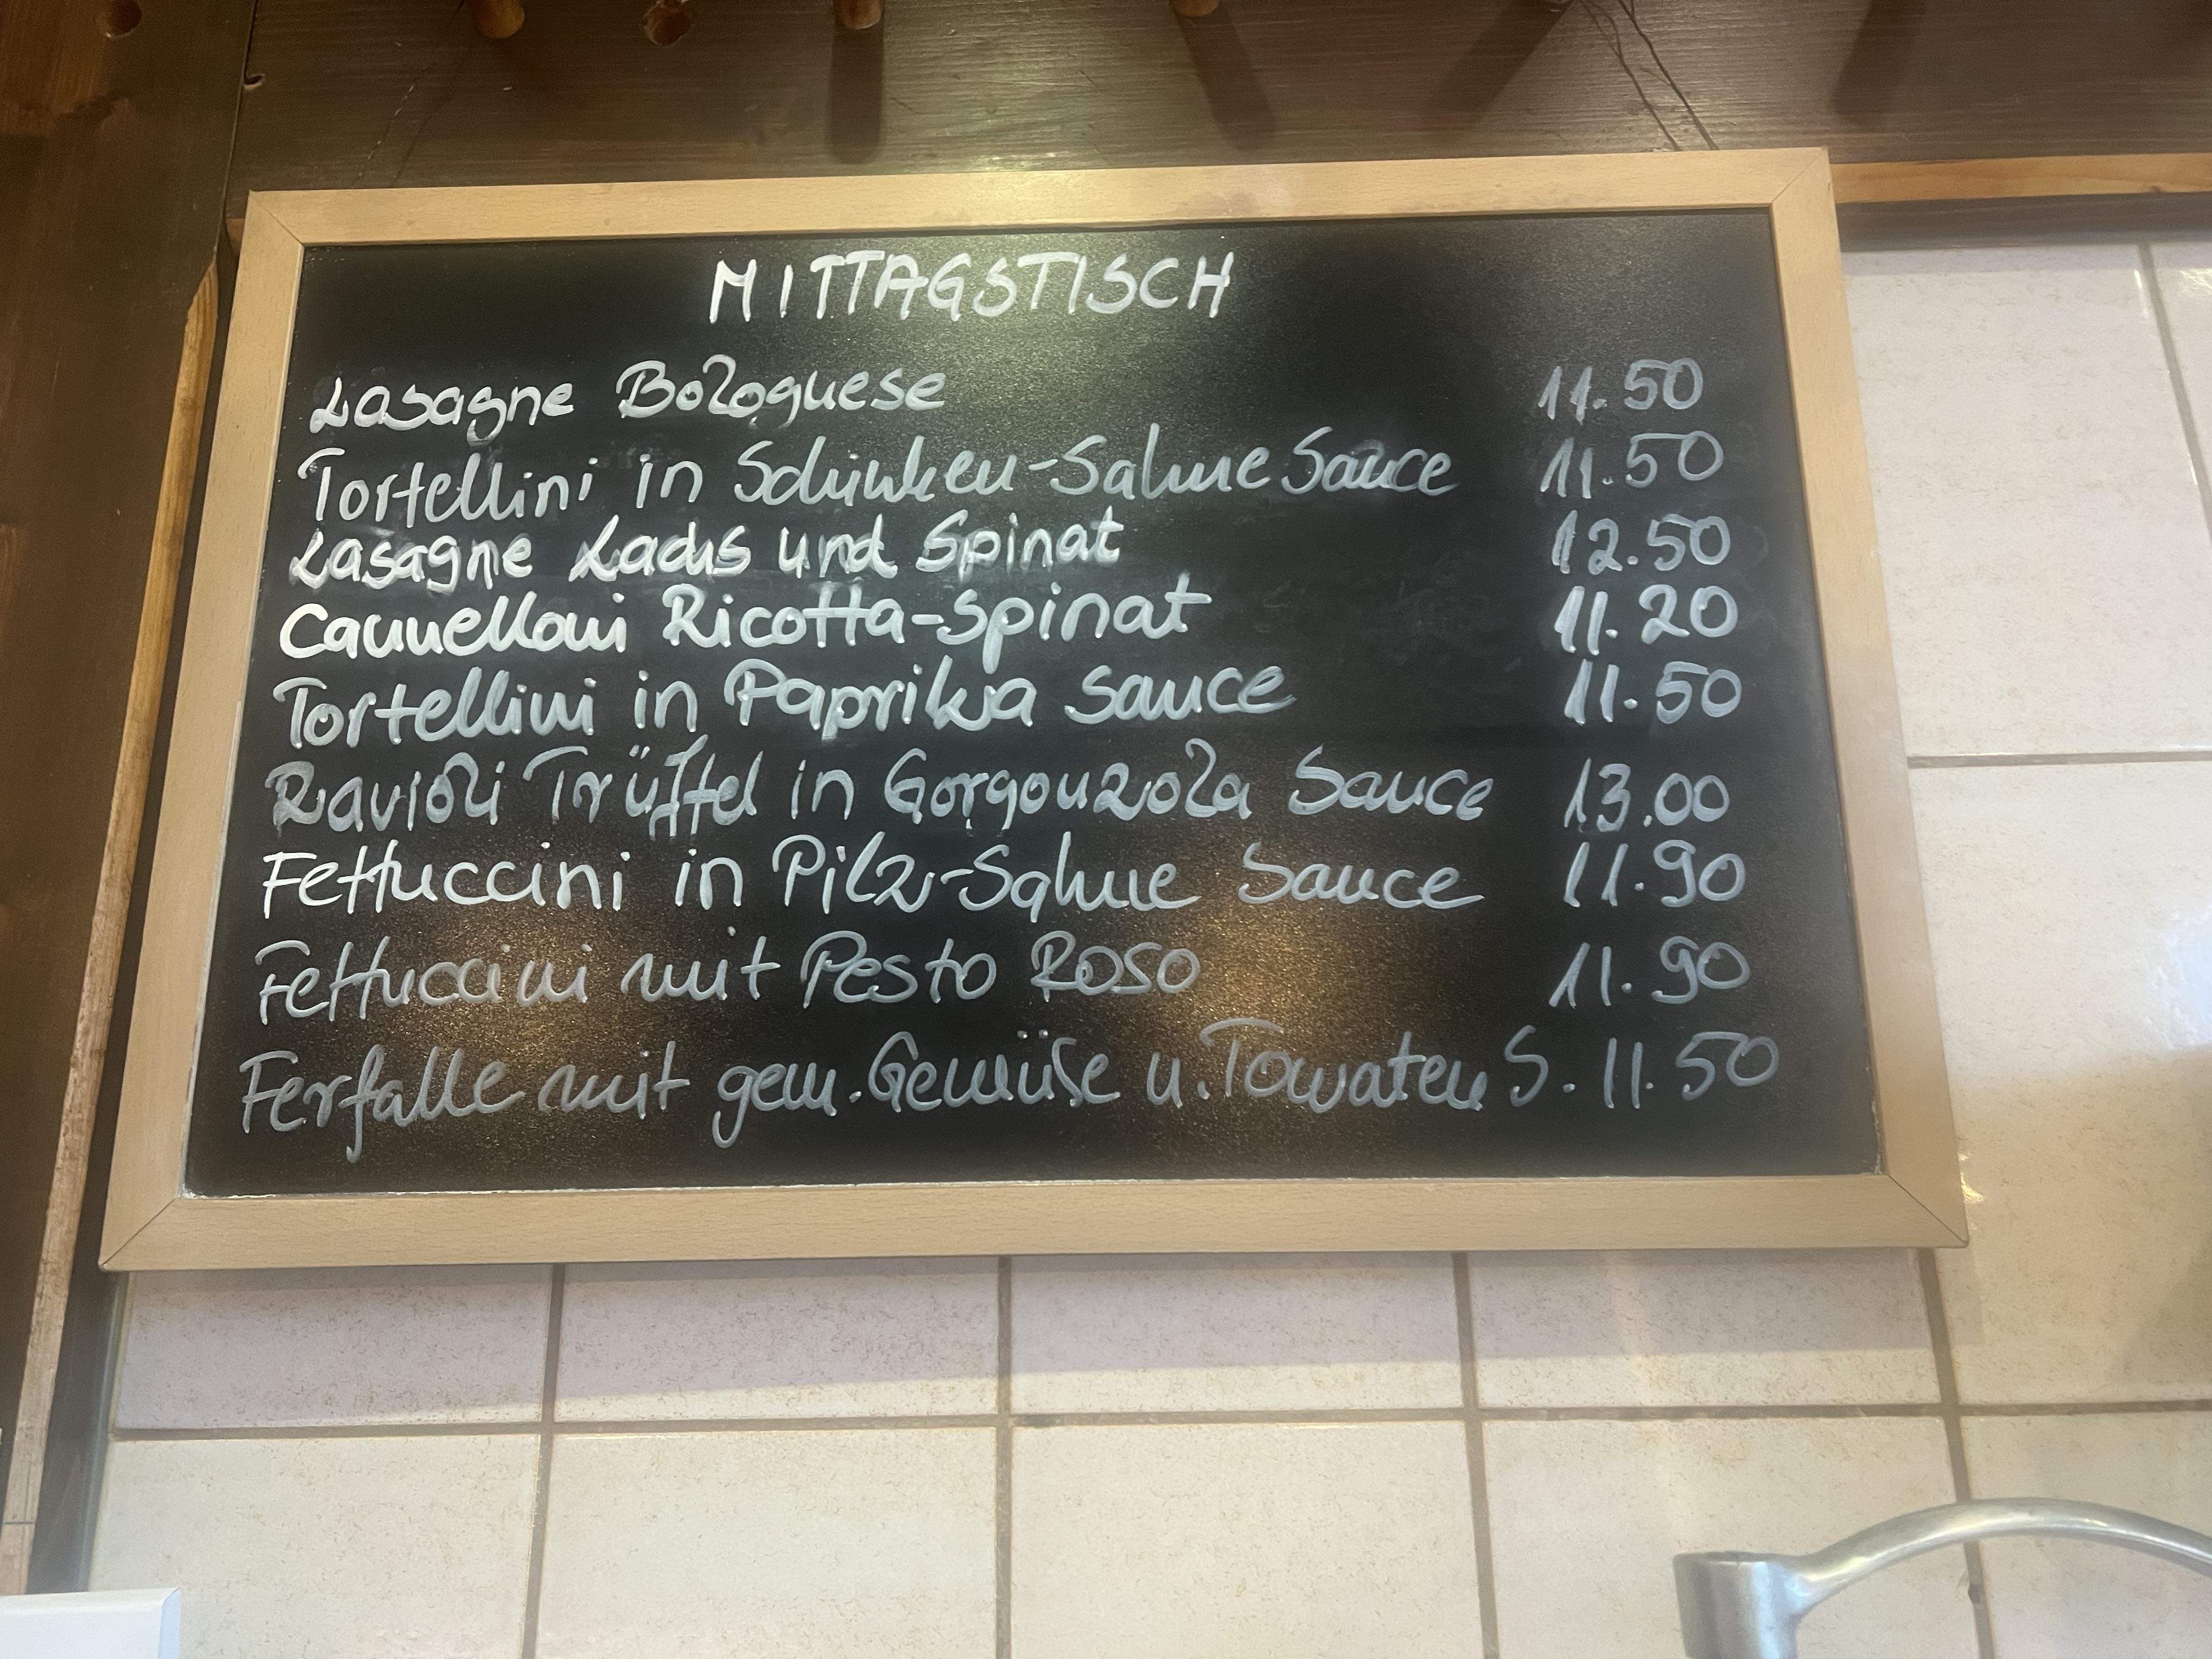 MITTAGSTISCH
Lasagne Bolognese 11.50
Tortellini in Schinken-Sahne Sauce 11.50
Lasagne Lachs und Spinat 12.50
Cannelloni Ricotta-Spinat 11.20
Tortellini in Paprika Sauce 11.50
Ravioli Trüffel in Gorgonzola Sauce 13.00
Fettuccini in Pilz-Sahne Sauce 11.90
Fettuccini mit Pesto Roso 11.90
Ferfalle mit gem. Gemüse u. Tomaten S. 11.50